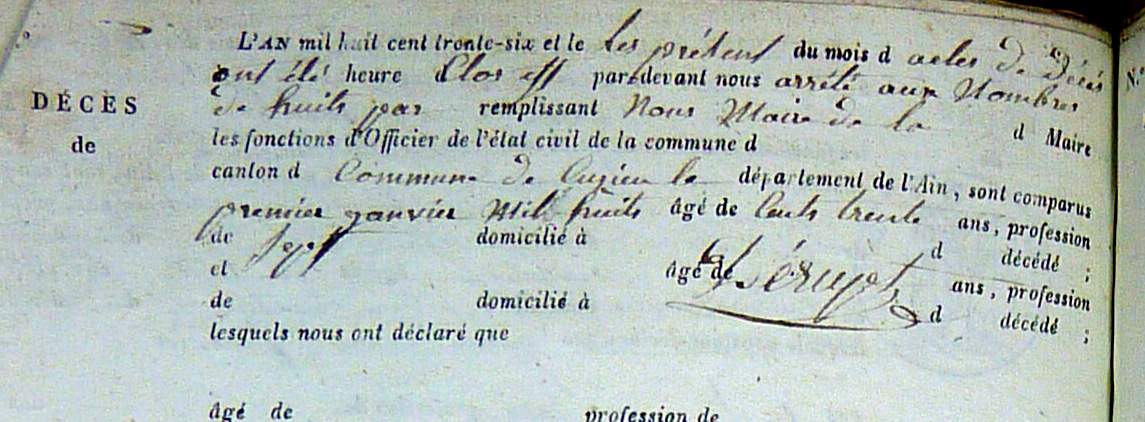 L'AN mil huit cent trente-six et le Les présent du mois d actes De Décés
ont été heure Clos eff par-devant nous arrêté aux Nombres
DÉCÈS
De huits par remplissant Nous Maire de la d Maire
de
les fonctions d'Officier de l'état civil de la commune d
canton d Commune de Cuzieu le département de l'Ain, sont comparus
premier janvier Mil huits âgé de Cents trente ans, profession
de Sept domicilié à d décédé ;
et âgé de ans, profession
de domicilié à d décédé ;
lesquels nous ont déclaré que
âgé de profession de
N.°